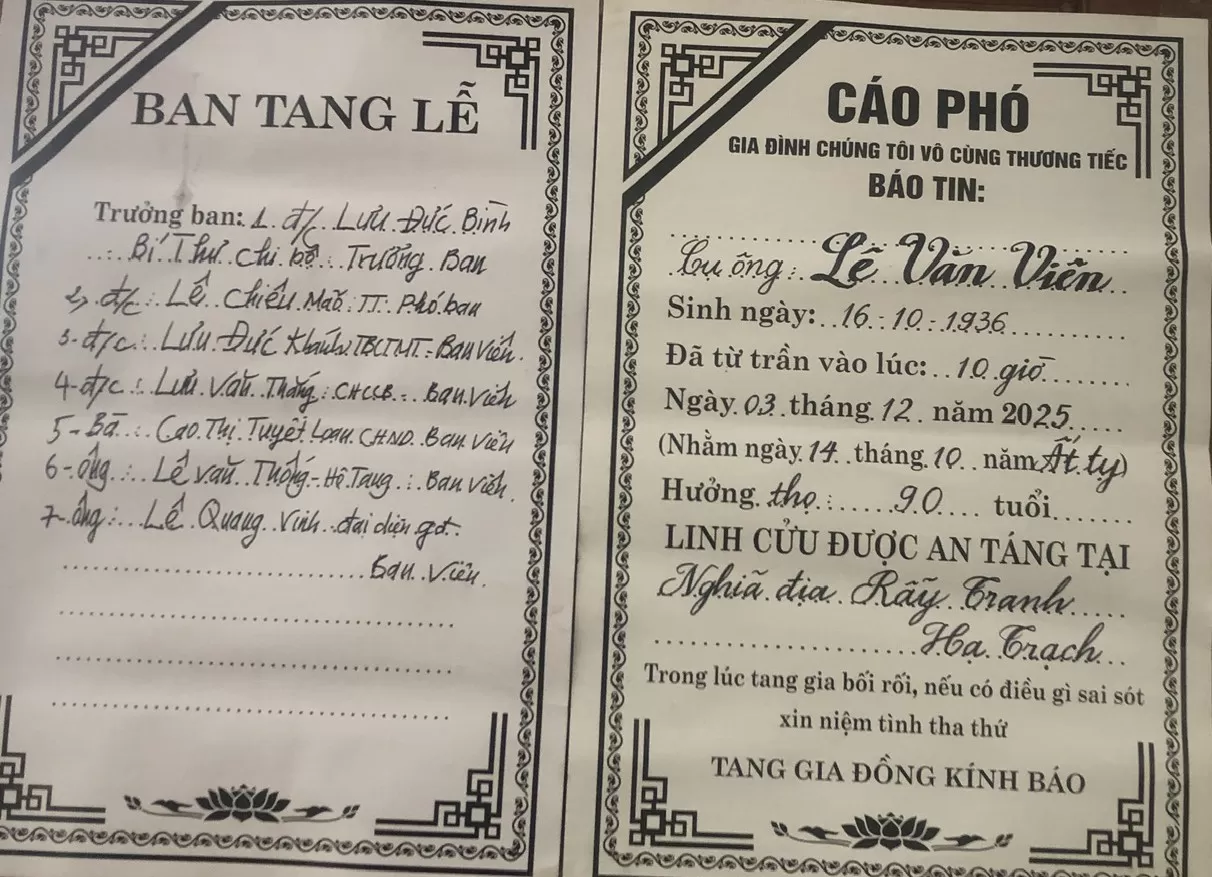 BAN TANG LỄ
Trưởng ban: 1. đ/c Lưu Đức Bình
Bí Thư chi bộ: Trưởng Ban
2, đ/c: Lê Chiêu Mão TT Phó ban
3- đ/c: Lưu Đức Khánh TBCTMT - Ban Viên.
4- đ/c: Lưu Văn Thắng: CHCCB - Ban Viên
5- Bà: Cao Thị Tuyết Loan CHND Ban Viên
6- ông: Lê Văn Thống - Hộ Tang: Ban Viên.
7- ông: Lê Quang Vinh đại diện gđ.
Ban Viên.
CÁO PHÓ
GIA ĐÌNH CHÚNG TÔI VÔ CÙNG THƯƠNG TIẾC
BÁO TIN:
Cụ ông: Lê Văn Viên
Sinh ngày: 16-10-1936
Đã từ trần vào lúc: 10 giờ
Ngày 03 tháng 12 năm 2025
(Nhằm ngày 14 tháng 10 năm Ất tỵ)
Hưởng thọ: 90 tuổi
LINH CỬU ĐƯỢC AN TÁNG TẠI
Nghĩa địa Rẫy Tranh
Hạ Trạch
Trong lúc tang gia bối rối, nếu có điều gì sai sót
xin niệm tình tha thứ
TANG GIA ĐỒNG KÍNH BÁO